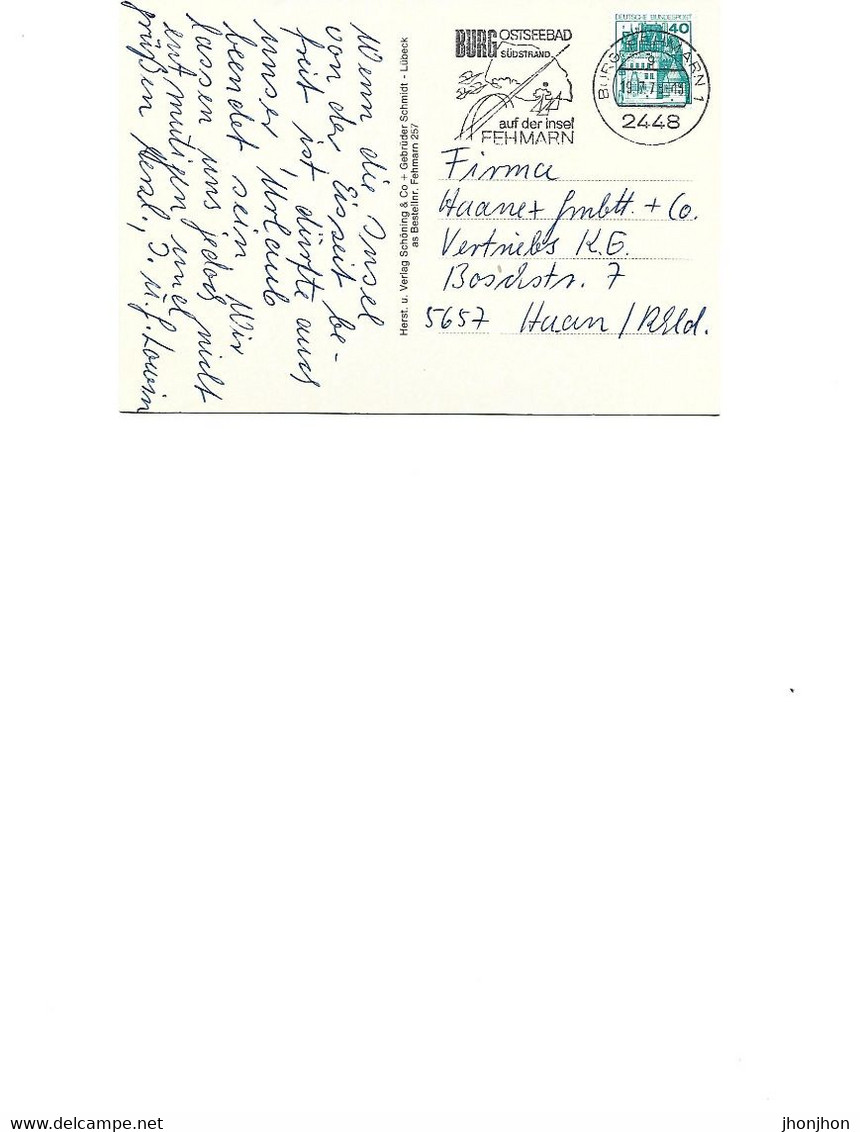 Wenn die Insel
von der Eiszeit be-
freit ist, dürfte auch
unser Urlaub
beendet sein. Wir
lassen uns jedoch nicht
entmutigen und
grüßen herzl.,
Herst. u. Verlag Schöning & Co + Gebrüder Schmidt - Lübeck
as Bestellnr. Fehmarn 257
BURG OSTSEEBAD
SÜDSTRAND
auf der Insel
FEHMARN
DEUTSCHE BUNDESPOST
40
BURG FEHMARN 1
2448
Firma
Haanex GmbH. + Co.
Vertriebs K.G.
Boschstr. 7
5657 Haan/Rhld.
www.delcampe.net
jhonjhon